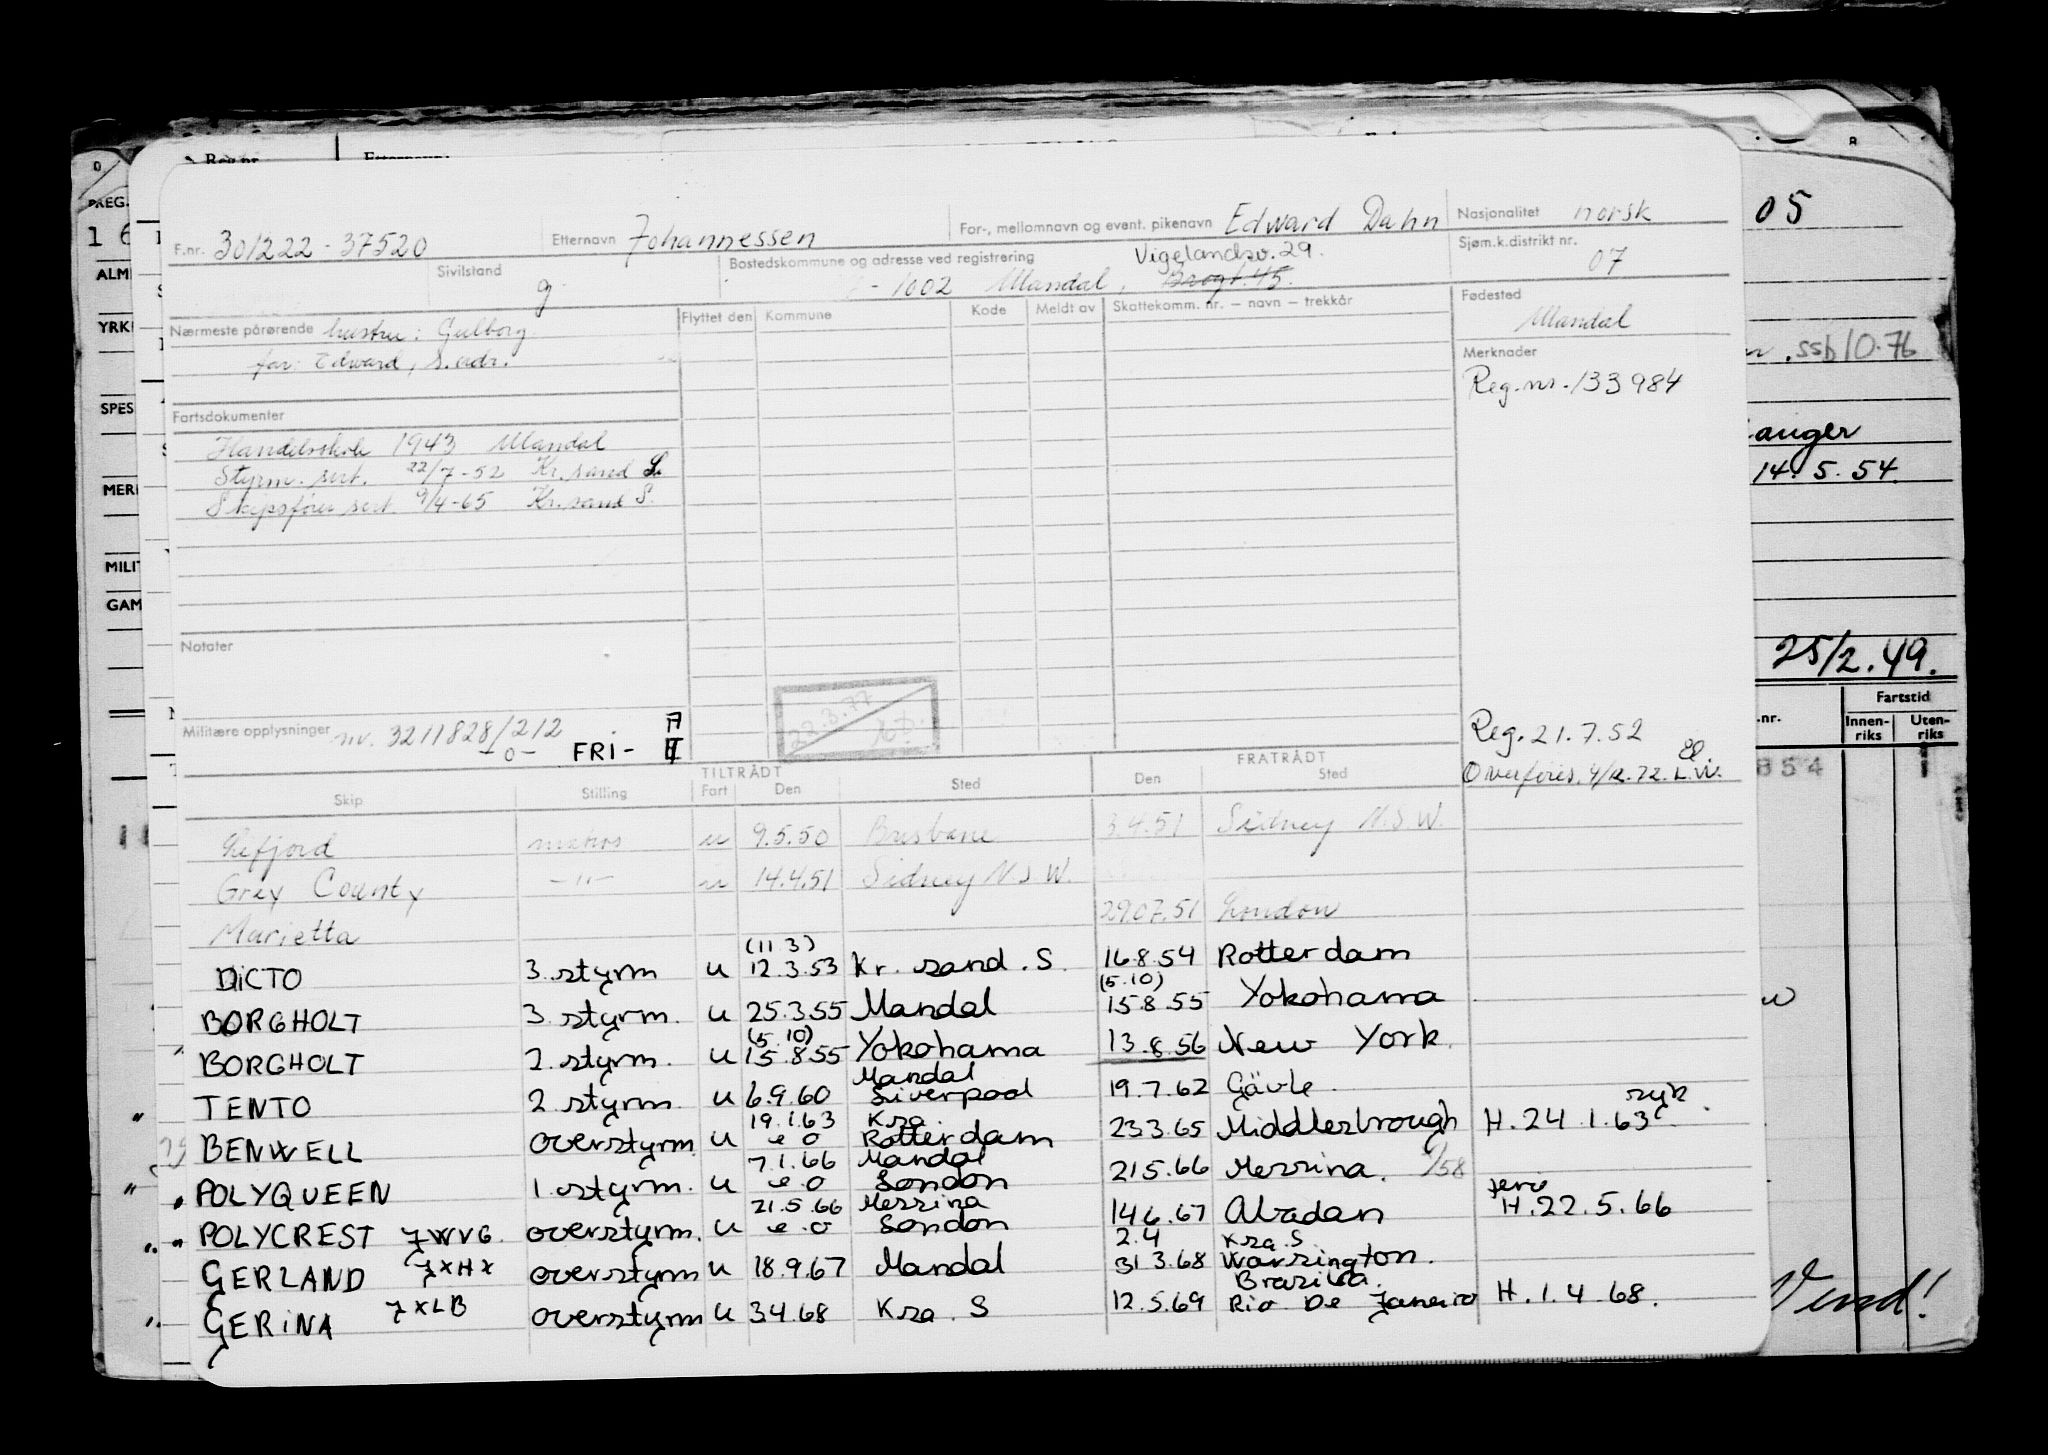 Reg.nr.
F.nr. 301222-37520 Etternavn Johannessen For-, mellomnavn og event. pikenavn Edward Dahn Nasjonalitet norsk
Sivilstand g Bostedskommune og adresse ved registrering Vigelandsv. 29. Sjøm.k.distrikt nr. 07
1002 Mandal, Brogt. 45.
Nærmeste pårørende hustru: Gulborg
far: Edward, s. adr.
Flyttet den Kommune Kode Meldt av Skattekomm. nr. — navn — trekkår
Fødested Mandal
Merknader
Reg.nr. 133984
Fartsdokumenter
Handelsskole 1943 Mandal
Styrm. sert. 22/7-52 Kr.sand S.
Skipsfører sert. 9/4-65 Kr.sand S.
Notater
Militære opplysninger nr. 3211828/212
-0- FRI-
22.3.77
Reg. 21.7.52
Overføres. 4/12.72. L.W.
TILTRÅDT FRATRÅDT
Skip Stilling Fart Den Sted Den Sted
Lifjord matros u 9.5.50 Brisbane 3.4.51 Sidney N.S.W.
Grey County -"- u 14.4.51 Sidney N.S.W.
Marietta 29.07.51 London
(11.3)
DICTO 3. styrm u 12.3.53 Kr. sand. S. 16.8.54 Rotterdam
(5.10)
BORGHOLT 3. styrm. u 25.3.55 Mandal 15.8.55 Yokohama
(5.10)
BORGHOLT 2. styrm. u 15.8.55 Yokohama 13.8.56 New York.
Mandal
" TENTO 2. styrm. u 6.9.60 Liverpool 19.7.62 Gävle.
19.1.63 Krs. syk.
BENWELL overstyrm. u e o Rotterdam 23.3.65 Middlesbrough H. 24.1.63
7.1.66 Mandal
" POLYQUEEN 1. styrm. u e.o London 21.5.66 Messina. 9/58
21.5.66 Messina ferie
" POLYCREST JWVG overstyrm. u e.o London 14.6.67 Abadan H. 22.5.66
2.4 Krs. S.
GERLAND JXHX overstyrm u 18.9.67 Mandal 31.3.68 Warrington.
Brasilia.
" GERINA JXLB overstyrm u 3.4.68 Krs. S 12.5.69 Rio De Janeiro H. 1.4.68.
REG.
ALM
YRK
SPES
MERK
MILIT
GAM
05
ssb 10.76
anger
14.5.54.
25/2.49.
.nr. Fartstid
Innenriks Utenriks
854
Vend!